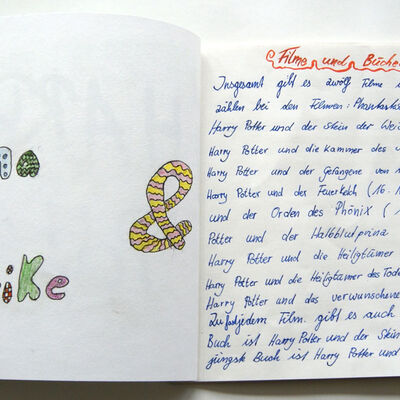 &
ike
Filme und Büche
Insgesamt gibt es zwölf Filme
zählen bei den Filmen: Phantast
Harry Potter und der Stein der Wei
Harry Potter und die Kammer des
Harry Potter und der Gefangene von
Harry Potter und der Feuerkelch (16.
und der Orden des Phönix (
Potter und der Halbblutprinz
Harry Potter und die Heiligtümer
Harry Potter und die Heiligtümer des Tode
Harry Potter und das verwunschene
Zu fast jedem Film gibt es auch
Buch ist Harry Potter und der Stein
jüngste Buch ist Harry Potter und